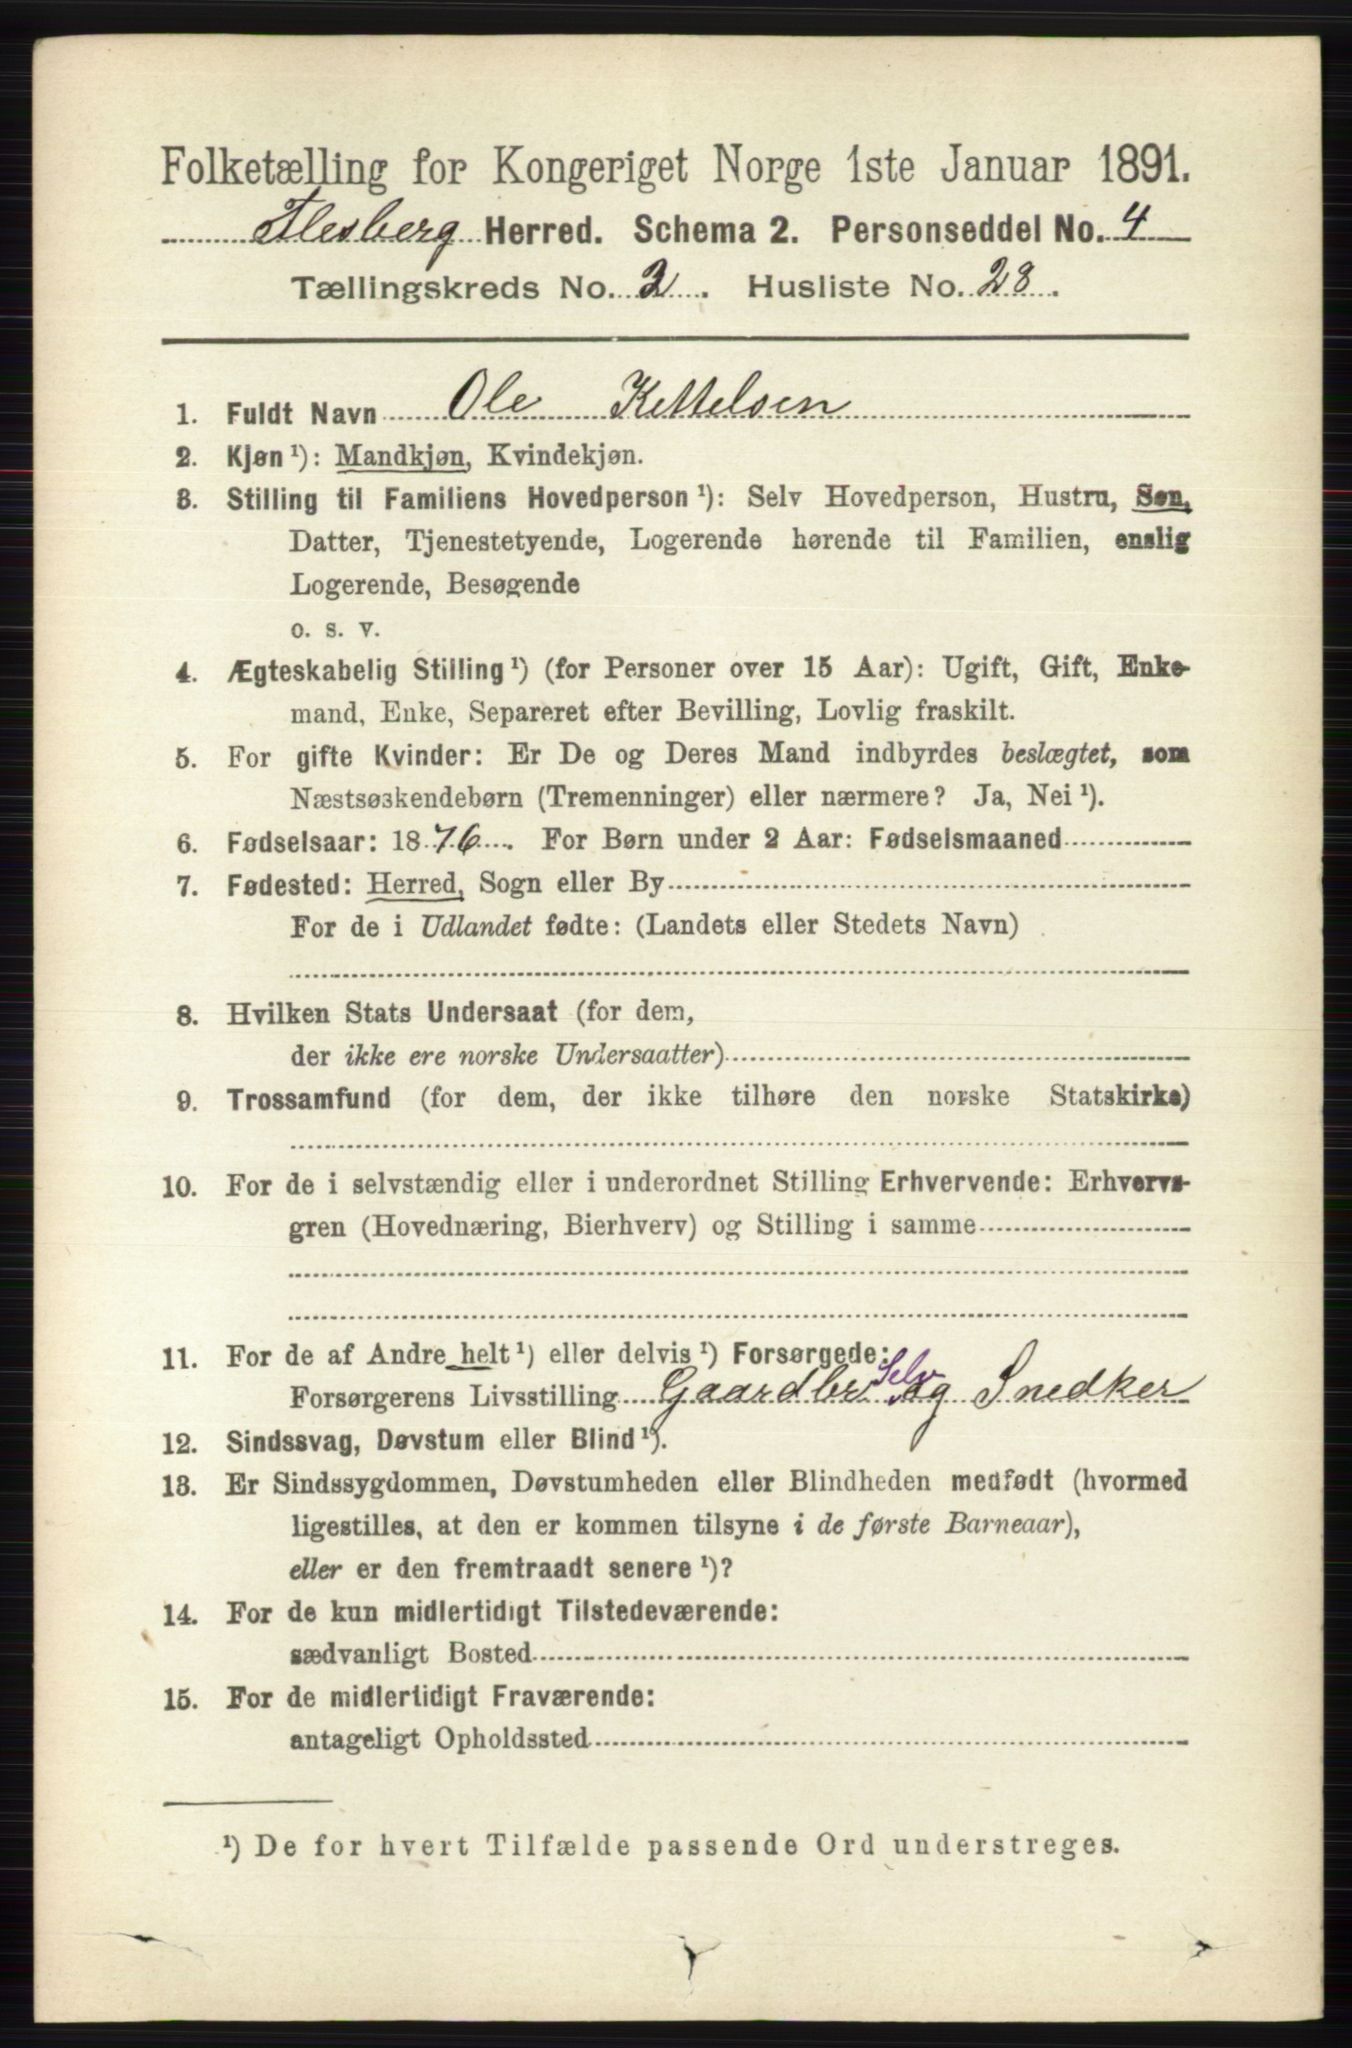 Folketælling for Kongeriget Norge 1ste Januar 1891.
Flesberg Herred. Schema 2. Personseddel No. 4
Tællingskreds No. 2. Husliste No. 28.
1. Fuldt Navn Ole Kettelsen
2. Kjøn ¹): Mandkjøn, Kvindekjøn.
3. Stilling til Familiens Hovedperson ¹): Selv Hovedperson, Hustru, Søn,
Datter, Tjenestetyende, Logerende hørende til Familien, enslig
Logerende, Besøgende
o. s. v.
4. Ægteskabelig Stilling ¹) (for Personer over 15 Aar): Ugift, Gift, Enke-
mand, Enke, Separeret efter Bevilling, Lovlig fraskilt.
5. For gifte Kvinder: Er De og Deres Mand indbyrdes beslægtet, som
Næstsøskendebørn (Tremenninger) eller nærmere? Ja, Nei ¹).
6. Fødselsaar: 1876. For Børn under 2 Aar: Fødselsmaaned
7. Fødested: Herred, Sogn eller By
For de i Udlandet fødte: (Landets eller Stedets Navn)
8. Hvilken Stats Undersaat (for dem,
der ikke ere norske Undersaatter)
9. Trossamfund (for dem, der ikke tilhøre den norske Statskirke)
10. For de i selvstændig eller i underordnet Stilling Erhvervende: Erhvervs-
gren (Hovednæring, Bierhverv) og Stilling i samme
11. For de af Andre helt ¹) eller delvis ¹) Forsørgede:
Selv
Forsørgerens Livsstilling Gaardbr og Snedker
12. Sindssvag, Døvstum eller Blind ¹).
13. Er Sindssygdommen, Døvstumheden eller Blindheden medfødt (hvormed
ligestilles, at den er kommen tilsyne i de første Barneaar),
eller er den fremtraadt senere ¹)?
14. For de kun midlertidigt Tilstedeværende:
sædvanligt Bosted
15. For de midlertidigt Fraværende:
antageligt Opholdssted
¹) De for hvert Tilfælde passende Ord understreges.